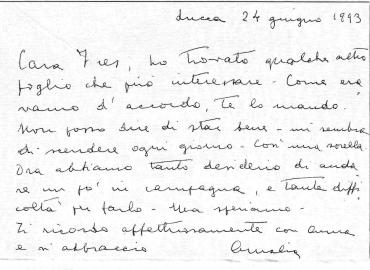 Lucca 24 giugno 1993
Cara Ires, ho trovato qualche altro
foglio che può interessare. Come era
vamo d'accordo, te lo mando.
Non posso dire di star bene - mi sembra
di scendere ogni giorno - Così mia sorella.
Ora abbiamo tanto desiderio di anda
re un po' in campagna, e tante diffi
coltà per farlo - Ma speriamo -
Ti ricordo affettuosamente con Anna
e vi abbraccio